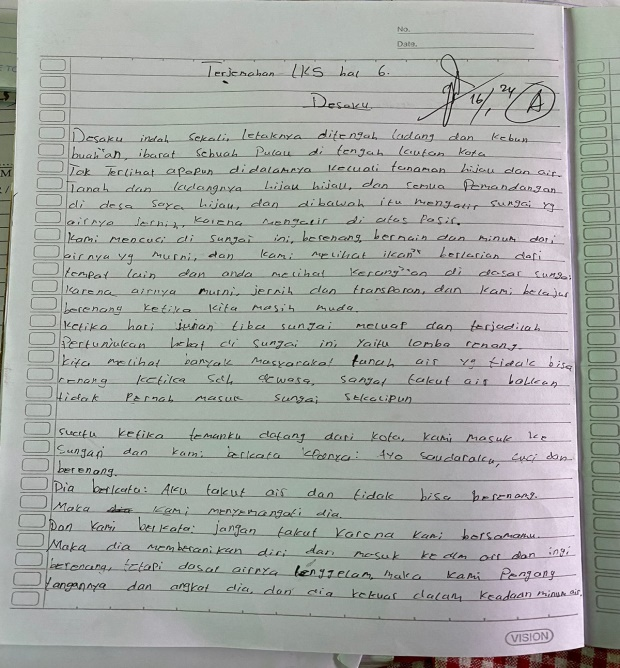 No.
Date.
Terjemahan LKS hal 6.
16/1 24 A
Desaku
Desaku indah sekali, letaknya ditengah ladang dan kebun
buah"an, ibarat sebuah Pulau di tengah lautan kota
Tak Terlihat apapun didalamnya kecuali tanaman hijau dan air.
Tanah dan ladangnya hijau hijau, dan semua Pemandangan
di desa saya hijau, dan dibawah itu mengalir sungai yg
airnya jernih, karena mengalir di atas Pasir.
Kami mencuci di sungai ini, berenang, bermain dan minum dari
airnya yg murni, dan kami melihat ikan" berlarian dari
tempat lain dan anda melihat kerang"an di dasar sungai
karena airnya murni, jernih dan transparan, dan kami belajar
berenang ketika kita masih muda.
Ketika hari tiba sungai meluap dan terjadilah
Pertunjukan hebat di sungai ini, yaitu lomba renang.
Kita melihat banyak Masyarakat tanah air yg tidak bisa
renang ketika sdh dewasa, sangat takut air bahkan
tidak Pernah masuk sungai sekalipun
suatu ketika temanku datang dari kota, kami masuk ke
sungai dan kami berkata : Ayo saudaraku, cuci dan
berenang.
Dia berkata: Aku takut air dan tidak bisa berenang.
Maka kami menyemangati dia.
Dan Kami berkata: jangan takut karena kami bersamamu.
Maka dia memberanikan diri dan masuk ke dlm air dan ingi
berenang, tetapi dasar airnya tenggelam, maka kami Pengang
tangannya dan angkat dia, dan dia keluar dalam keadaan minum air.
VISION